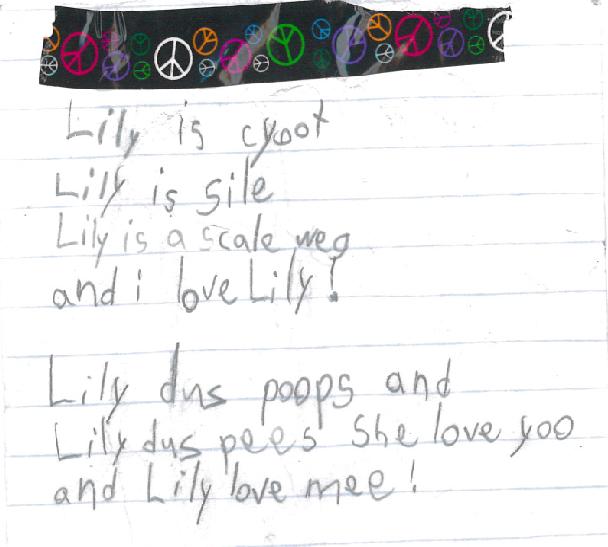 Lily is cyoot
Lily is sile
Lily is a scale weg
and i love Lily!
Lily dus poops and
Lily dus pees She love yoo
and Lily love mee!